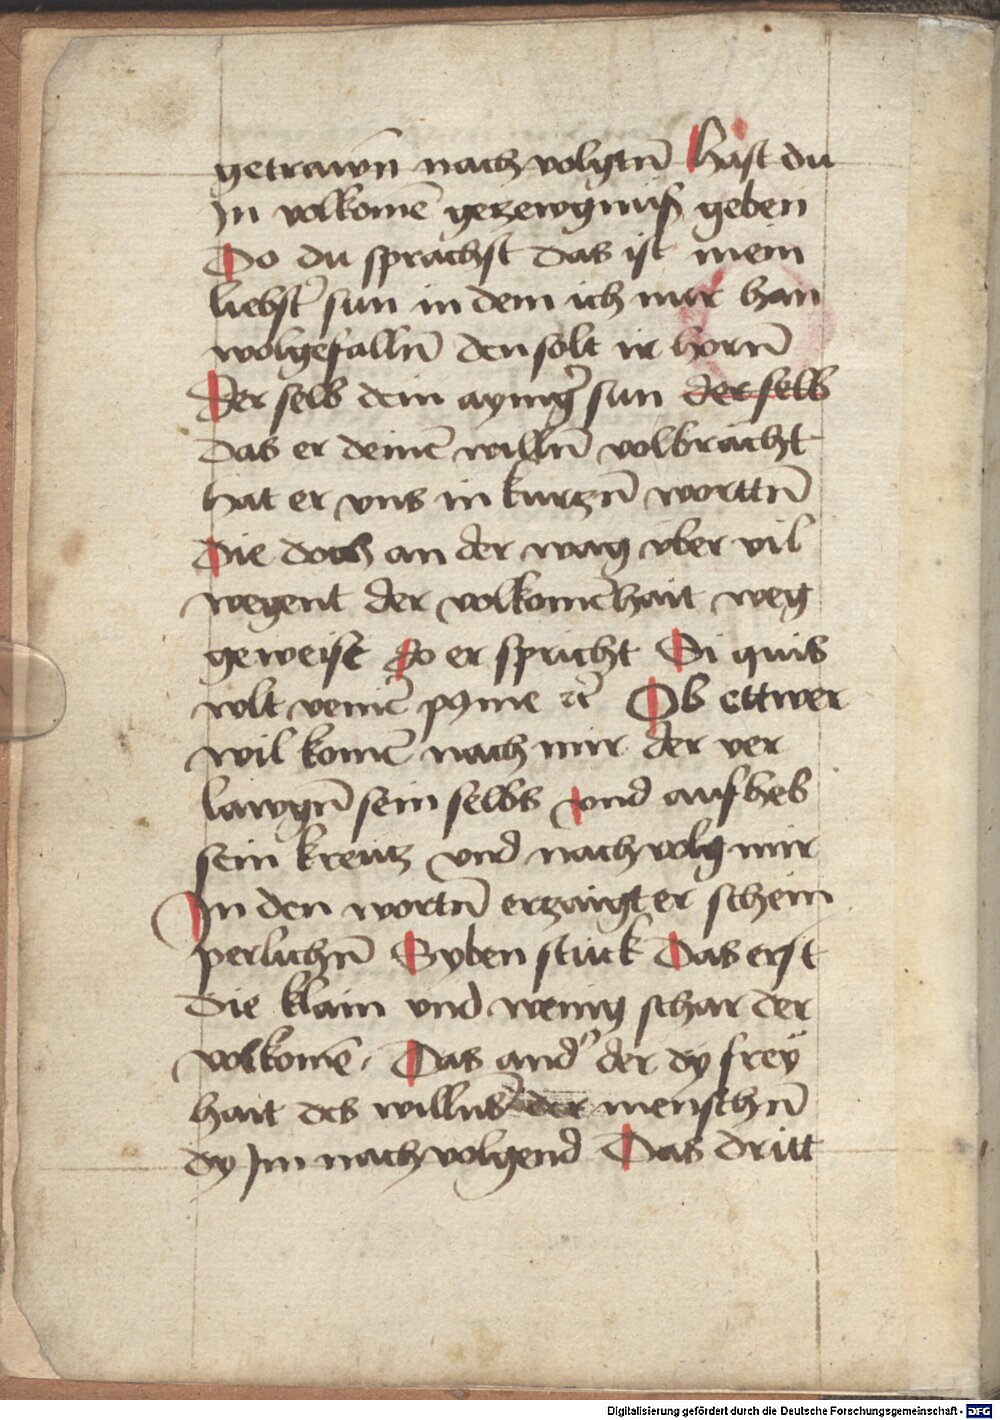 getrawn nach volgtn̄ Hast du
Jn volkomē gezewgnuß geben
Do du sprachst das ist mein
liebst̉ sun in dem ich mir han
wolgefalln̄ den solt ir horn̄
Der selb dein aynig̉ sun der selb
das er deinē willn̄ volbracht
hat er vns in kurzn̄ worttn̄
Die doch an der wag vber vil
wegent der volkomēhait weg
geweist So er spricht Si quis
vlt venir̄ p9 me ⁊c̄ Ob ettwer
wil komē nach mir der ver
lawgn̄ sein selbs vnd aufheb
sein kreutz vnd nachvolg mir
Jn den wortn̄ erzaigt er schein
perlichn̄ Syben stuck Das erst
die klain vnd wenig schar der
volkomē. Das and̉ der dy frey
hait des willns der menschn̄
dy Jm nachvolgend Das dritt
Digitalisierung gefördert durch die Deutsche Forschungsgemeinschaft - DFG